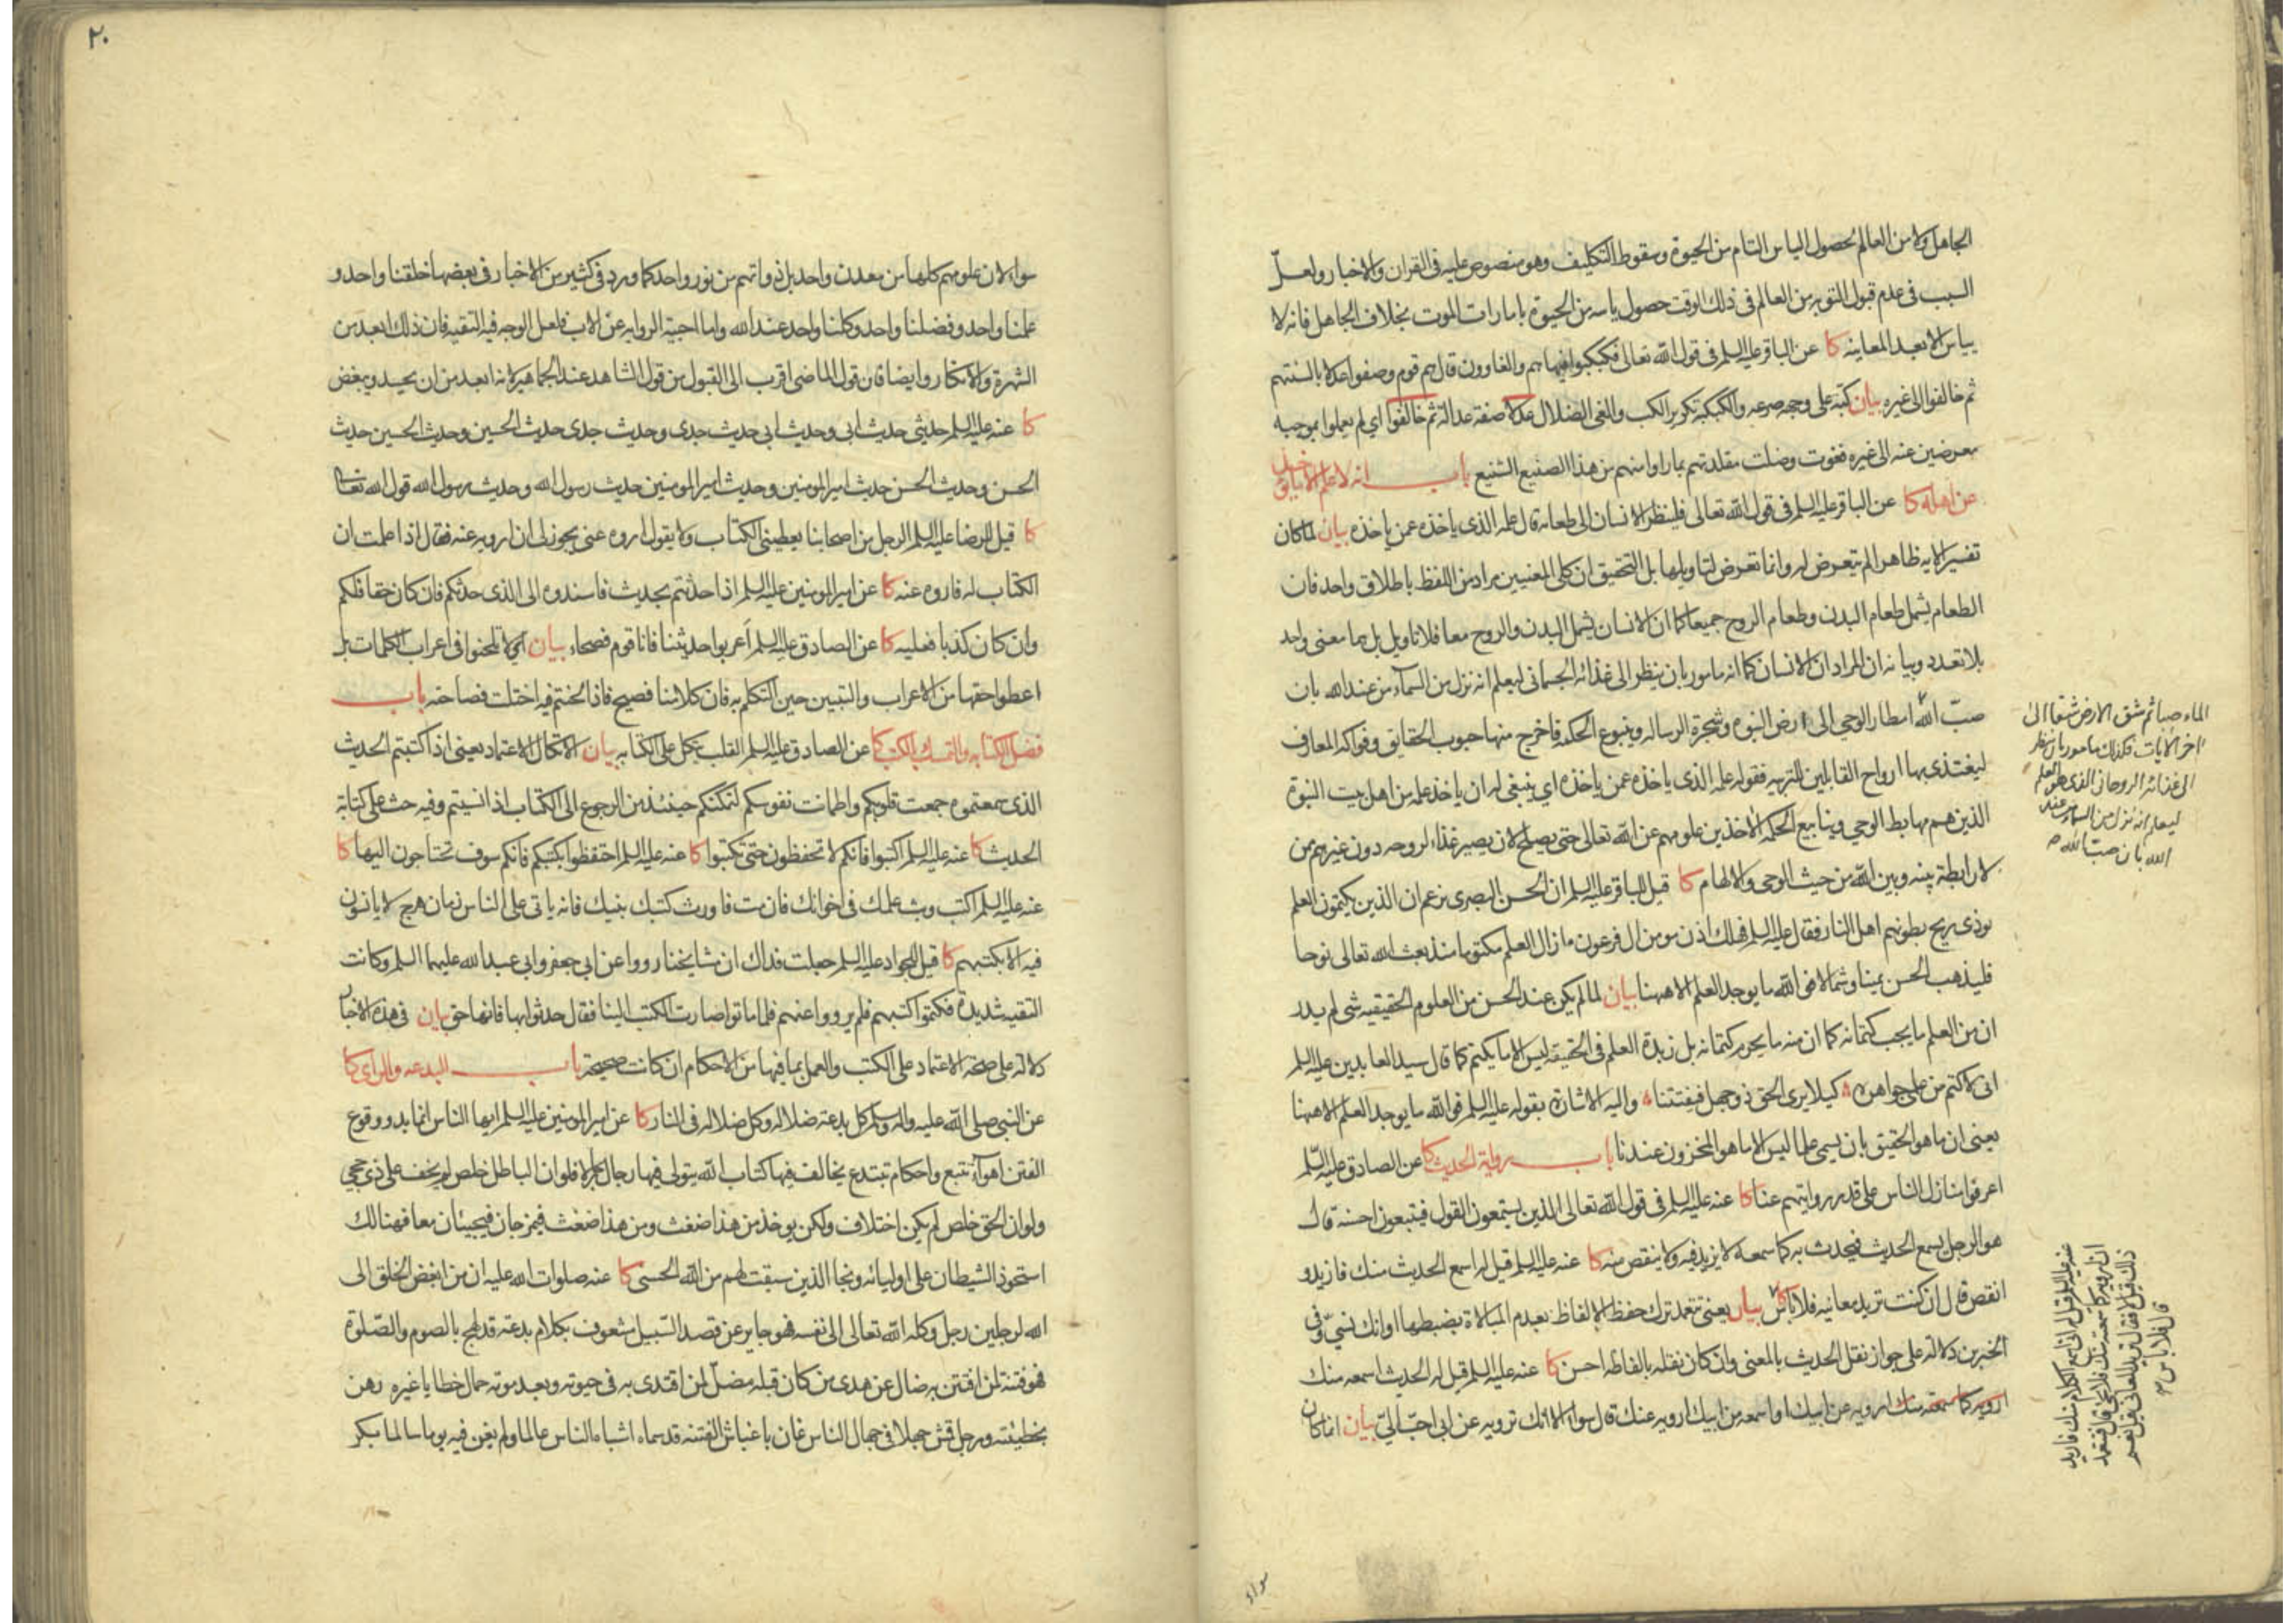 الجاهل ولا من العالم لحصول الياس التام من الحيوة وسقوط التكليف وهو منصوص عليه فى القران والاخبار ولعلّ
السبب فى عدم قبول التوبه من العالم فى ذلك الوقت حصول ياسه من الحيوة بامارات الموت بخلاف الجاهل فانه لا
يياس الا بعد المعاينه كا عن الباقر عليه السلم فى قول الله تعالى فكبكبوا فيها هم والغاوون قال هم قوم وصفوا عدلا بالسنتهم
ثم خالفوا الى غيره بيان كبّه على وجهه صرعه والكبكبة تكرير الكب والغى الضلال عدلا صفة عدالة ثم خالفوا اى لم يعملوا بموجبه
معرضين عنه الى غيره فغوت وضلت مقلدتهم بما راوا منهم من هذا الصنيع الشنيع باب انه لا علم الا ما يؤخذ
عن اهله كا عن الباقر عليه السلم فى قول الله تعالى فلينظر الانسان الى طعامه قال علمه الذى ياخذه عمن ياخذه بيان لما كان
تفسير الايه ظاهرا لم يتعرض له وانما تعرض لتاويلها بل التحقيق ان كلى المعنيين مراد من اللفظ باطلاق واحد فان
الطعام يشمل طعام البدن وطعام الروح جميعا كما ان الانسان يشمل البدن والروح معا فلا تاويل بل هما معنى واحد
بلا تعدد وبيانه ان المراد ان الانسان كما انه مامور بان ينظر الى غذائه الجسمانى ليعلم انه نزل من السمآء من عند الله بان
صبّ الله امطار الوحى الى ارض النبوه وشجرة الرساله وينبوع الحكمه فاخرج منها حبوب الحقائق وفواكه المعارف
ليغتذى بها ارواح القابلين للتربيه فقوله علمه الذى ياخذه عمن ياخذه اى ينبغى له ان ياخذ علمه من اهل بيت النبوة
الذين هم مهابط الوحى وينابيع الحكمه الاخذين علومهم عن الله تعالى حتى يصلح لان يصير غذاء لروحه دون غيرهم من
لا رابطة بينه وبين الله من حيث الوحى والالهام كا قيل للباقر عليه السلم ان الحسن البصرى يزعم ان الذين يكتمون العلم
يوذى ريح بطونهم اهل النار فقال عليه السلم فهلك اذن مومن ال فرعون ما زال العلم مكتوما منذ بعث الله تعالى نوحا
فليذهب الحسن يمينا وشمالا فوالله ما يوجد العلم الا ههنا بيان لما لم يكن عند الحسن من العلوم الحقيقيه شى لم يدر
ان من العلم ما يجب كتمانه كما ان منه ما يحرم كتمانه بل زبدة العلم فى الحقيقه ليس الا ما يكتم كما قال سيد العابدين عليه السلم
انى لاكتم من علمى جواهره كيلا يرى الحق ذو جهل فيفتتنا واليه الاشارة بقوله عليه السلم فوالله ما يوجد العلم الا ههنا
يعنى ان ما هو الحقيق بان يسمى علما ليس الا ما هو المخزون عندنا باب رواية الحديث كا عن الصادق عليه السّلم
اعرفوا منازل الناس على قدر روايتهم عنا كا عنه عليه السلم فى قول الله تعالى الذين يستمعون القول فيتبعون احسنه قال
هو الرجل يسمع الحديث فيحدث به كما سمعه لا يزيد فيه ولا ينقص منه كا عنه عليه السلم قيل له اسمع الحديث منك فازيد و
انقص قال ان كنت تريد معانيه فلا باس بيان يعنى تتعمد ترك حفظ الالفاظ بعدم المبالاة بضبطها او انك نسىّ وفى
الخبرين دلالة على جواز نقل الحديث بالمعنى وان كان نقله بالفاظه احسن كا عنه عليه السلم قيل له الحديث اسمعه منك
ارويه عن ابيك او اسمعه من ابيك ارويه عنك قال سواء الا انك ترويه عن ابى احبّ الىّ بيان انما كان
الماء صبا ثم شق الارض شقا الى
اخر الايات فكذلك مامور بان ينظر
الى غذائه الروحانى الذى هو العلم
ليعلم انه نزل من السماء من عند
الله بان صبّ الله
عنه عليه السلم قيل له انى اسمع الكلام منك فاريد
ان ارويه كما سمعته منك فلا يجئ قال فتتعمد
ذلك قيل لا فقال تريد المعانى قيل نعم
قال فلا باس
سواء
٢٠
سواء لان علومهم كلها من معدن واحد بل ذواتهم من نور واحد كما ورد فى كثير من الاخبار فى بعضها خلقنا واحد و
علمنا واحد وفضلنا واحد وكلنا واحد عند الله واما احبية الروايه عن الاب فلعل الوجه فيه التقيه فان ذلك ابعد من
الشهرة والانكار وايضا فان قول الماضى اقرب الى القبول من قول الشاهد عند الجماهير لانه ابعد من ان يحسد ويبغض
كا عنه عليه السلم حديثى حديث ابى وحديث ابى حديث جدى وحديث جدى حديث الحسين وحديث الحسين حديث
الحسن وحديث الحسن حديث امير المومنين وحديث امير المومنين حديث رسول الله وحديث رسول الله قول الله تعالى
كا قيل للرضا عليه السلم الرجل من اصحابنا يعطينى الكتاب ولا يقول اروه عنى يجوز لى ان ارويه عنه فقال اذا علمت ان
الكتاب له فاروه عنه كا عن امير المومنين عليه السلم اذا حدثتم بحديث فاسندوه الى الذى حدثكم فان كان حقا فلكم
وان كان كذبا فعليه كا عن الصادق عليه السلم اَعربوا حديثنا فانا قوم فصحاء بيان اى لا تلحنوا فى اعراب الكلمات بل
اعطوا حقها من الاعراب والتبيين حين التكلم به فان كلامنا فصيح فاذا لحنتم فيه اختلت فصاحته باب
فضل الكتابه والتمسك بالكتب كا عن الصادق عليه السلم القلب يتكل على الكتابه بيان الاتكال الاعتماد يعنى اذا كتبتم الحديث
الذى سمعتموه جمعت قلوبكم واطمانت نفوسكم لتمكنكم حينئذ من الرجوع الى الكتاب اذا نسيتم وفيه حث على كتابة
الحديث كا عنه عليه السلم اكتبوا فانكم لا تحفظون حتى تكتبوا كا عنه عليه السلم احتفظوا بكتبكم فانكم سوف تحتاجون اليها كا
عنه عليه السلم اكتب وبث علمك فى اخوانك فان مت فاورث كتبك بنيك فانه ياتى على الناس زمان هرج لا يانسون
فيه الا بكتبهم كا قيل للجواد عليه السلم جعلت فداك ان مشايخنا رووا عن ابى جعفر وابى عبد الله عليهما السلم وكانت
التقيه شديدة فكتموا كتبهم فلم يرووا عنهم فلما ماتوا صارت الكتب الينا فقال حدثوا بها فانها حق بيان فى هذه الاخبار
دلالة على صحة الاعتماد على الكتب والعمل بما فيها من الاحكام ان كانت صحيحة باب البدعه والراى كا
عن النبى صلى الله عليه واله وسلم كل بدعة ضلاله وكل ضلاله فى النار كا عن امير المومنين عليه السلم ايها الناس انما بدو وقوع
الفتن اهوآء تتبع واحكام تبتدع يخالف فيها كتاب الله يتولى فيها رجال رجالا فلو ان الباطل خلص لم يخف على ذى حجى
ولو ان الحق خلص لم يكن اختلاف ولكن يوخذ من هذا ضغث ومن هذا ضغث فيمزجان فيجيئان معا فهنالك
استحوذ الشيطان على اوليائه ونجا الذين سبقت لهم من الله الحسنى كا عنه صلوات الله عليه ان من ابغض الخلق الى
الله لرجلين رجل وكله الله تعالى الى نفسه فهو جاير عن قصد السّبيل مشعوف بكلام بدعة قد لهج بالصوم والصّلوة
فهو فتنة لمن افتتن به ضال عن هدى من كان قبله مضلّ لمن اقتدى به فى حيوته وبعد موته حمال خطايا غيره رهن
بخطيئته ورجل قمش جهلا فى جهال الناس عان باغباش الفتنة قد سماه اشباه الناس عالما ولم يغن فيه يوما سالما بكر